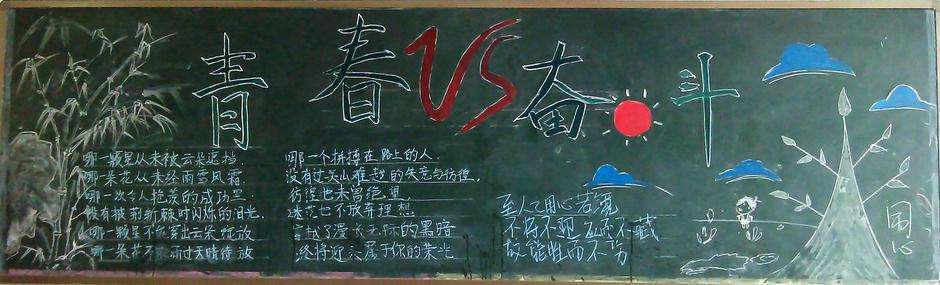 青春VS奋斗
哪一颗星从未被云朵遮挡
哪一朵花从未经雨雪风霜
哪一次令人艳羡的成功里
没有披荆斩棘时闪烁的泪光
哪一颗星不能穿出云朵绽放
哪一朵花不雨过天晴待放
哪一个拼搏在路上的人
没有过关山难越的失意与彷徨
彷徨也未曾绝望
迷茫也不放弃理想
穿越了漫长无际的黑暗
终将迎来属于你的荣光
至人之用心若镜
不将不迎 应而不藏
故能胜而不伤
同心